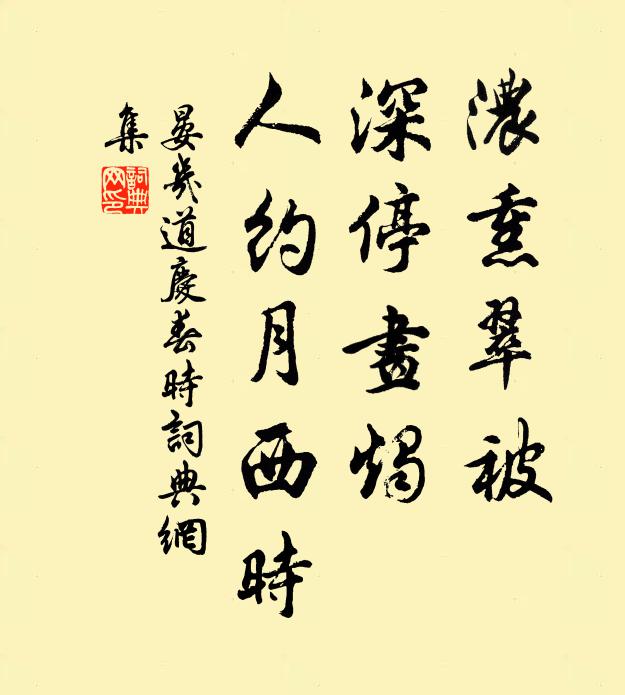 濃熏翠被
深停畫燭
人約月西時
晏幾道慶春時詞典網
集
詞典網印